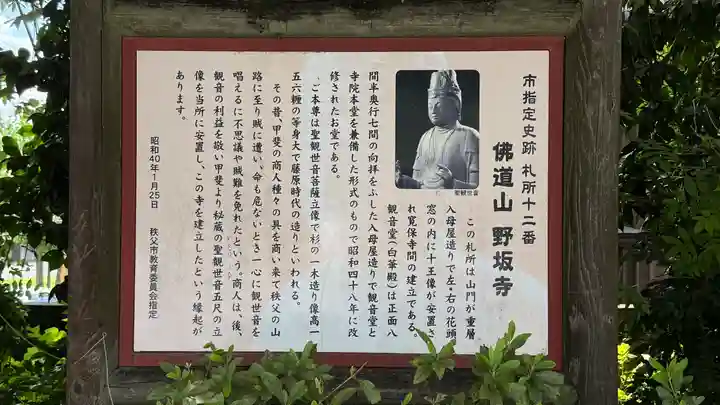 市指定史跡 札所十二番
佛道山 野坂寺
この札所は山門が重層
入母屋造りで左・右の花頭
窓の内に十王像が安置さ
れ寛保寺間の建立である。
観音堂(白華殿)は正面八
聖観世音
間半奥行七間の向拝をふした入母屋造りで観音堂と
寺院本堂を兼備した形式のもので昭和四十八年に改
修されたお堂である。
ご本尊は聖観世音菩薩立像で杉の一木造り像高一
五六糎の等身大で藤原時代の造りといわれる。
その昔、甲斐の商人種々の具を商い来て秩父の山
路に至り賊に遭い。命も危ないとき一心に観世音を
唱えるに不思議や賊難を免れたという。商人は、後、
観音の利益を敬い甲斐より秘蔵の聖観世音五尺の立
像を当所に安置し、この寺を建立したという縁起が
あります。
昭和40年1月25日 秩父市教育委員会指定